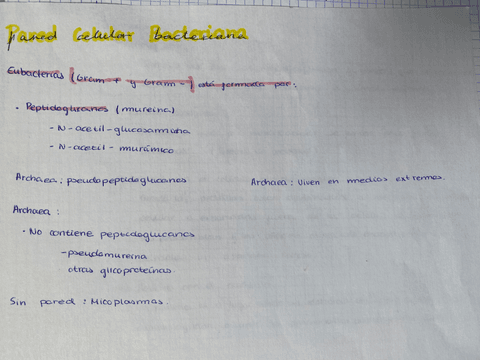 Pared Celular Bacteriana
Eubacterias (Gram + y Gram -) está formada por:
· Peptidoglucanos (mureina)
- N-acetil-glucosamina
- N-acetil-murámico
Archaea: pseudopeptidoglucanos
Archaea: Viven en medios extremos.
Archaea:
· No contiene peptidoglucanos
- pseudomureina
otras glicoproteínas.
Sin pared: Micoplasmas.